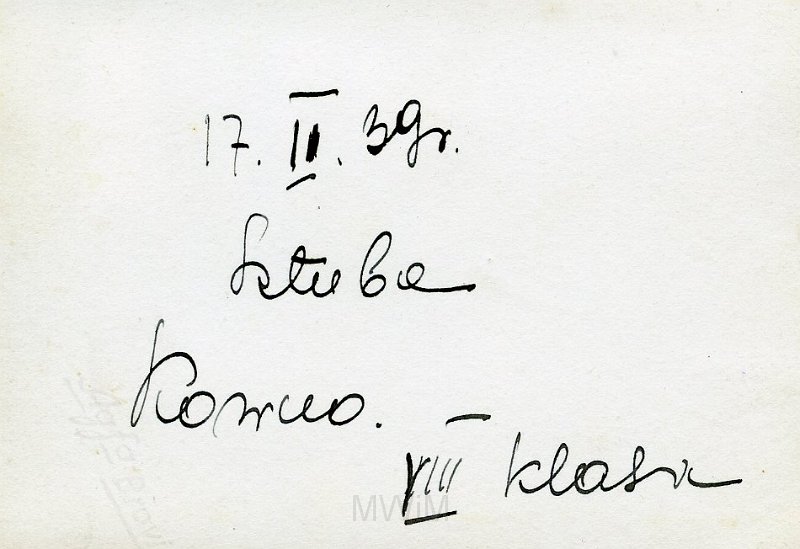 17. II. 39 r.
Sztuba
Kowno.
VIII klasa
MWiM